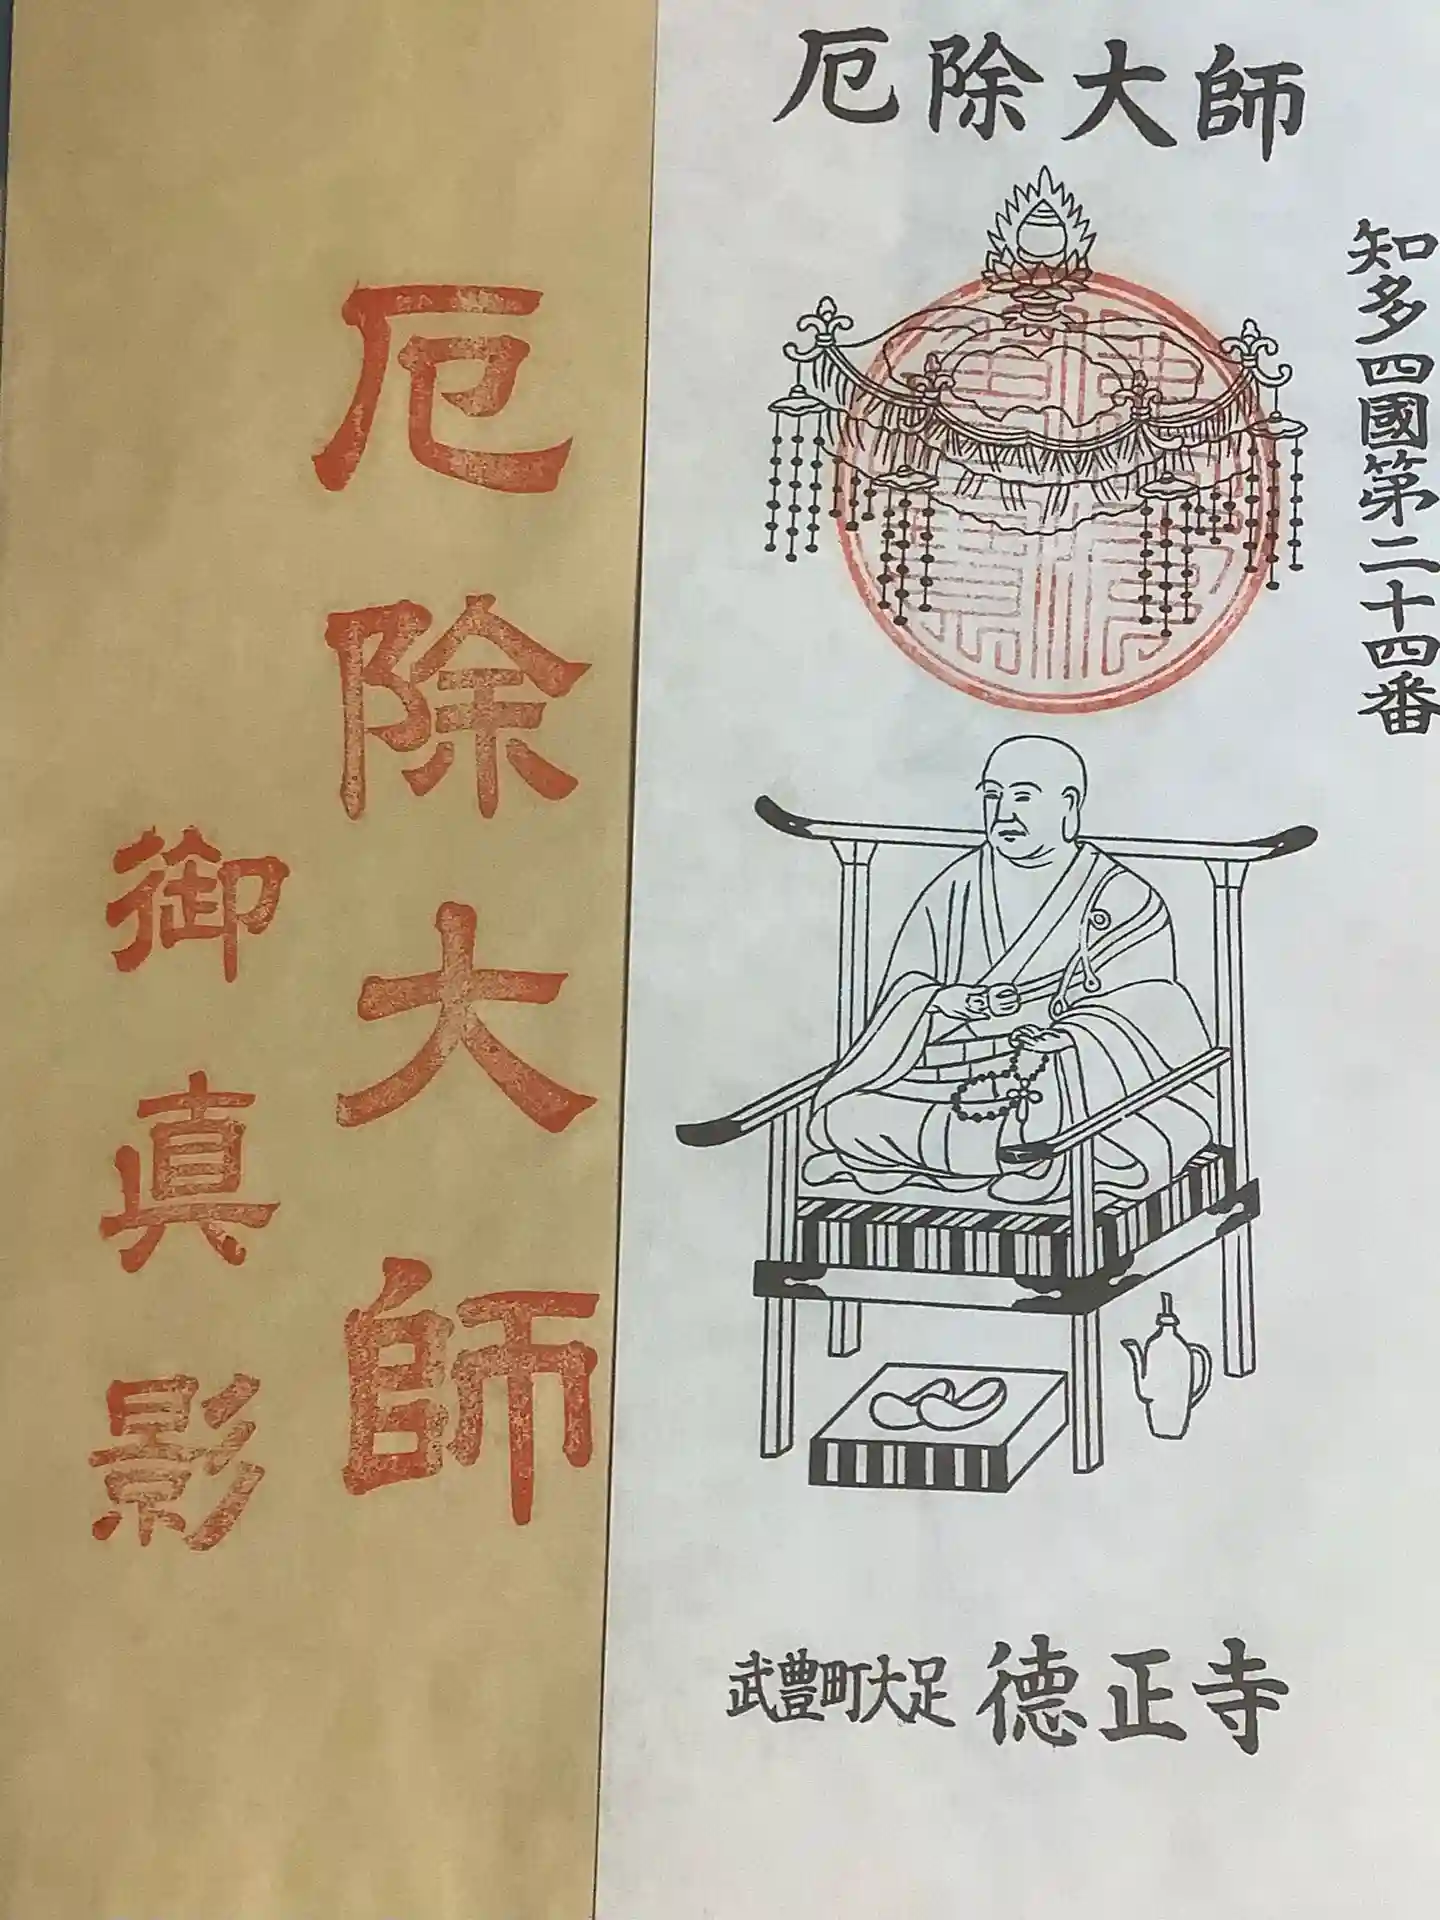 厄除大師
御真影
厄除大師
知多四國第二十四番
武豊町大足 德正寺